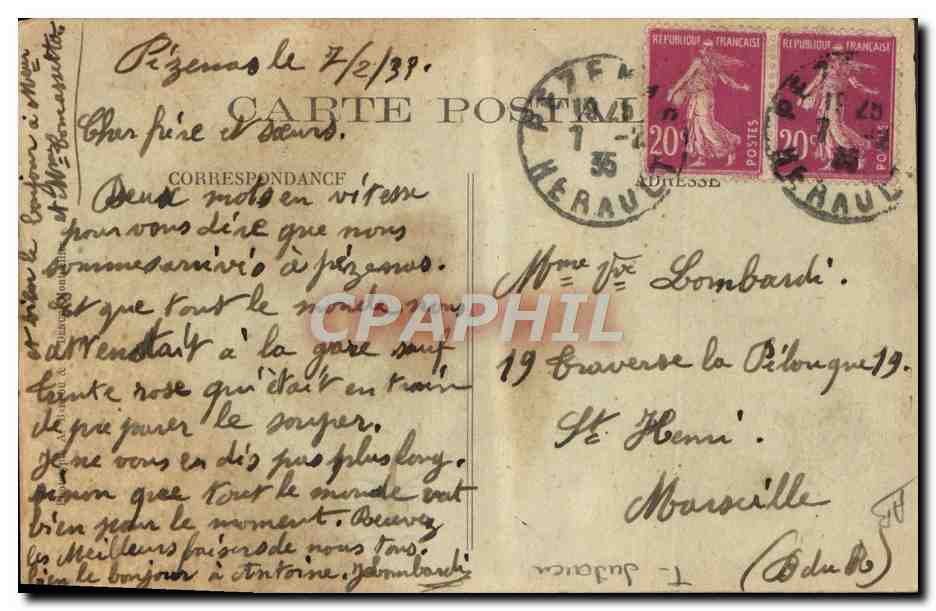 Pézenas le 7/2/33.
CARTE POSTALE
Cher frère et sœurs.
CORRESPONDANCE
ADRESSE
Deux mots en vitesse
pour vous dire que nous
sommes arrivés à pézenas.
et que tout le monde nous
attendait à la gare sauf
tente rose qu'était en train
de preparer le souper.
Je ne vous en dis pas plus long.
sinon que tout le monde vat
bien pour le moment. Recevez
les Meilleurs baisers de nous tous.
bien le bonjour à Antoine. JLombardi
et bien le bonjour à Mr
et Mme
Mme Vve Lombardi.
19 Traverse la Pélouque 19.
St Henri.
Marseille
(B du R)
REPUBLIQUE FRANÇAISE
20c
POSTES
REPUBLIQUE FRANÇAISE
20c
POSTES
PEZENAS
7 -2
35
HERAULT
CPAPHIL